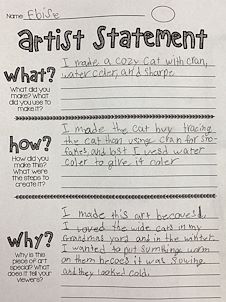 Name: Eloise
Artist Statement
What?
What did you make? What did you use to make it?
I made a cozy Cat with cran,
water coler, and sharpe
how?
How did you make this? What were the steps to create it?
I made the cat buy tracing
the cat than using cran for sno-
flakes, and last I used water
coler to give it coler
Why?
Why is this piece of art special? What does it tell your viewers?
I made this art becaused
I loved the wide cats in my
Grandmas yard and in the winter
I wanted to put sumthing worm
on them becaes it was snowing
and they looked cold.